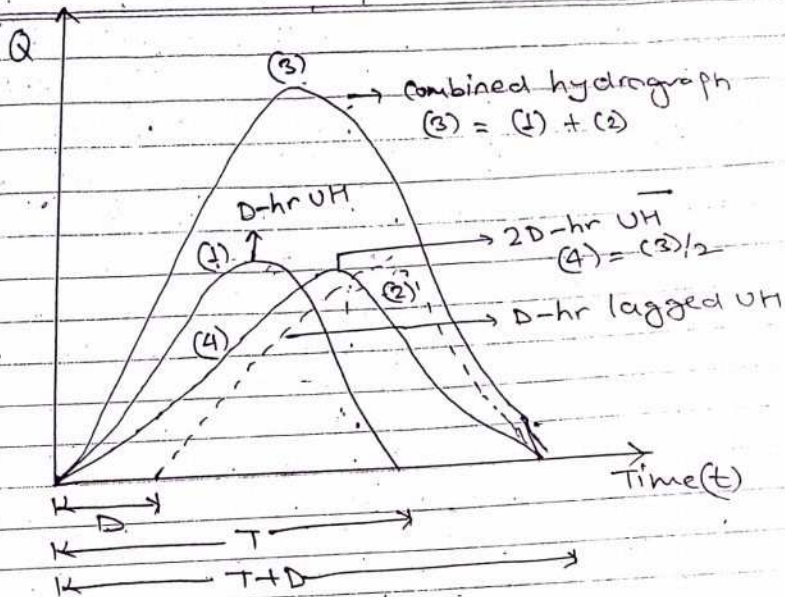 Q
(3)
→ Combined hydrograph
(3) = (1) + (2)
D-hr UH
(1)
2D-hr UH
(4) = (3)/2
(2)
(4)
D-hr lagged UH
Time(t)
D
T
T+D